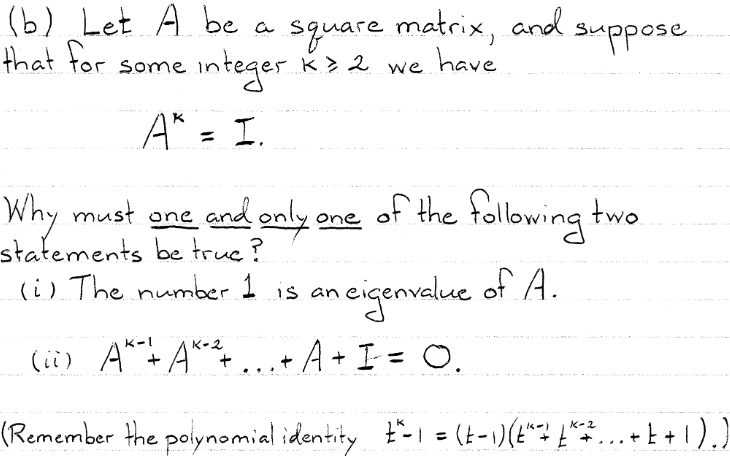 (b) Let A be a square matrix, and suppose
that for some integer k ≥ 2 we have
A^k = I.
Why must one and only one of the following two
statements be true?
(i) The number 1 is an eigenvalue of A.
(ii) A^{k-1} + A^{k-2} + ... + A + I = O.
(Remember the polynomial identity t^k - 1 = (t-1)(t^{k-1} + t^{k-2} + ... + t + 1).)